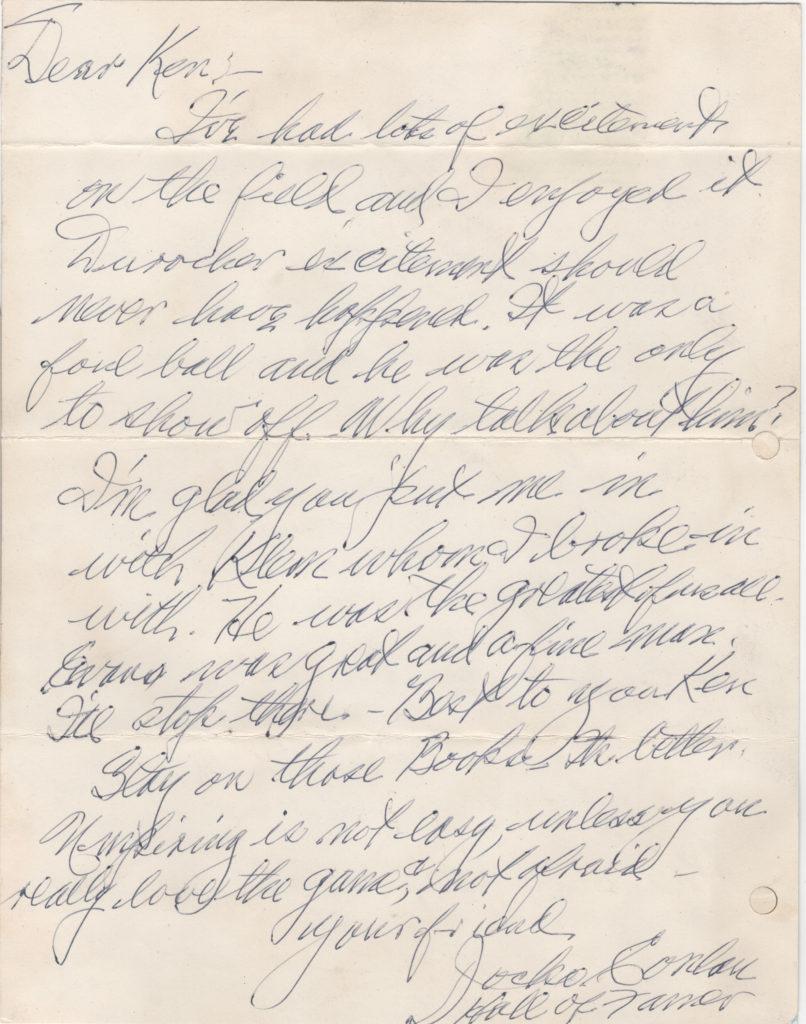 Dear Ken:-
I've had lots of excitement
on the field and I enjoyed it.
Durocher excitement should
never have happened. It was a
foul ball and he was the only
to show off. Why talk about him?
I'm glad you put me in
with Klem whom I broke in
with. He was the greatest of us all.
Evans was great and a fine man.
I'll stop there. - Best to you Ken
Stay on those Books better.
Umpiring is not easy, unless you
really love the game, & not afraid -
your friend
Jocko Conlan
Hall of Famer